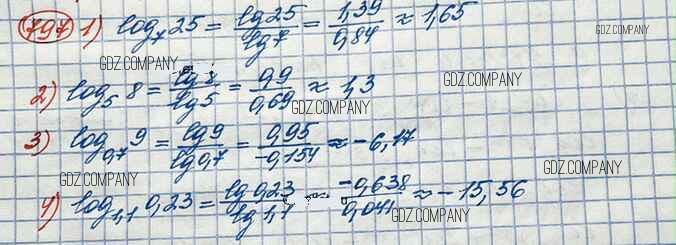 797 1) log₇ 25 = lg 25 / lg 7 = 1,39 / 0,84 ≈ 1,65
GDZ.COMPANY
GDZ.COMPANY
2) log₅ 8 = lg 8 / lg 5 = 0,9 / 0,69 ≈ 1,3
GDZ.COMPANY
GDZ.COMPANY
3) log₀,₇ 9 = lg 9 / lg 0,7 = 0,95 / -0,154 ≈ -6,17
GDZ.COMPANY
GDZ.COMPANY
GDZ.COMPANY
4) log₁,₁ 0,23 = lg 0,23 / lg 1,1 = -0,638 / 0,041 ≈ -15,56
GDZ.COMPANY